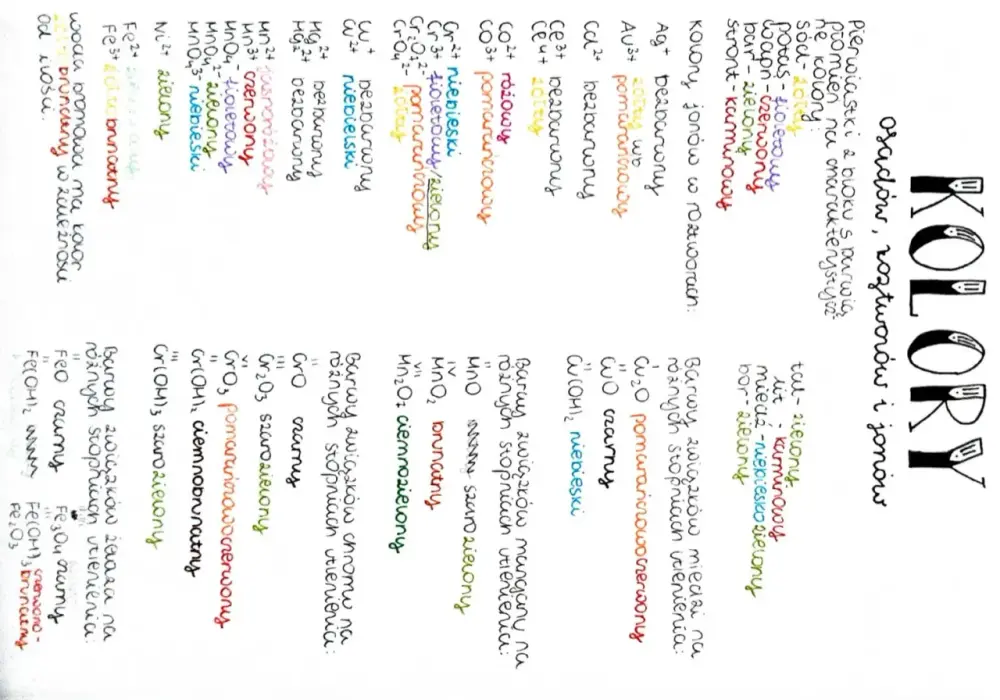 KOLORY
osadów, roztworów i jonów
Pierwiastki z bloku s barwią
płomień na charakterystycz-
ne kolory:
sód - żółty
potas - fioletowy
wapń - czerwony
bar - zielony
stront - karminowy
tal - zielony
lit - karminowy
miedź - niebieskozielony
bor - zielony
Kolory jonów w roztworach:
Ag⁺ bezbarwny
Au³⁺ żółty lub
pomarańczowy
Cd²⁺ bezbarwny
Ce³⁺ bezbarwny
Ce⁴⁺ żółty
Co²⁺ różowy
Co³⁺ pomarańczowy
Cr²⁺ niebieski
Cr³⁺ fioletowy/zielony
Cr₂O₇²⁻ pomarańczowy
CrO₄²⁻ żółty
Cu⁺ bezbarwny
Cu²⁺ niebieski
Hg₂²⁺ bezbarwny
Hg²⁺ bezbarwny
Mn²⁺ jasnoróżowy
Mn³⁺ czerwony
MnO₄⁻ fioletowy
MnO₄²⁻ zielony
MnO₄³⁻ niebieski
Ni²⁺ zielony
Fe²⁺
Fe³⁺ żółtobrunatny
woda bromowa ma kolor
żółty brunatny w zależności
od ilości.
Barwy związków miedzi na
różnych stopniach utlenienia:
Cu₂O pomarańczowoczerwony
II
CuO czarny
II
Cu(OH)₂ niebieski
Barwy związków manganu na
różnych stopniach utlenienia:
II
MnO szarozielony
IV
MnO₂ brunatny
VII
Mn₂O₇ ciemnozielony
Barwy związków chromu na
różnych stopniach utlenienia:
II
CrO czarny
III
Cr₂O₃ szarozielony
VI
CrO₃ pomarańczowoczerwony
II
Cr(OH)₂ ciemnobrunatny
III
Cr(OH)₃ szarozielony
Barwy związków żelaza na
różnych stopniach utlenienia:
II
FeO czarny Fe₃O₄ czarny
II III
Fe(OH)₂ Fe(OH)₃ czerwono-
Fe₂O₃ brunatny